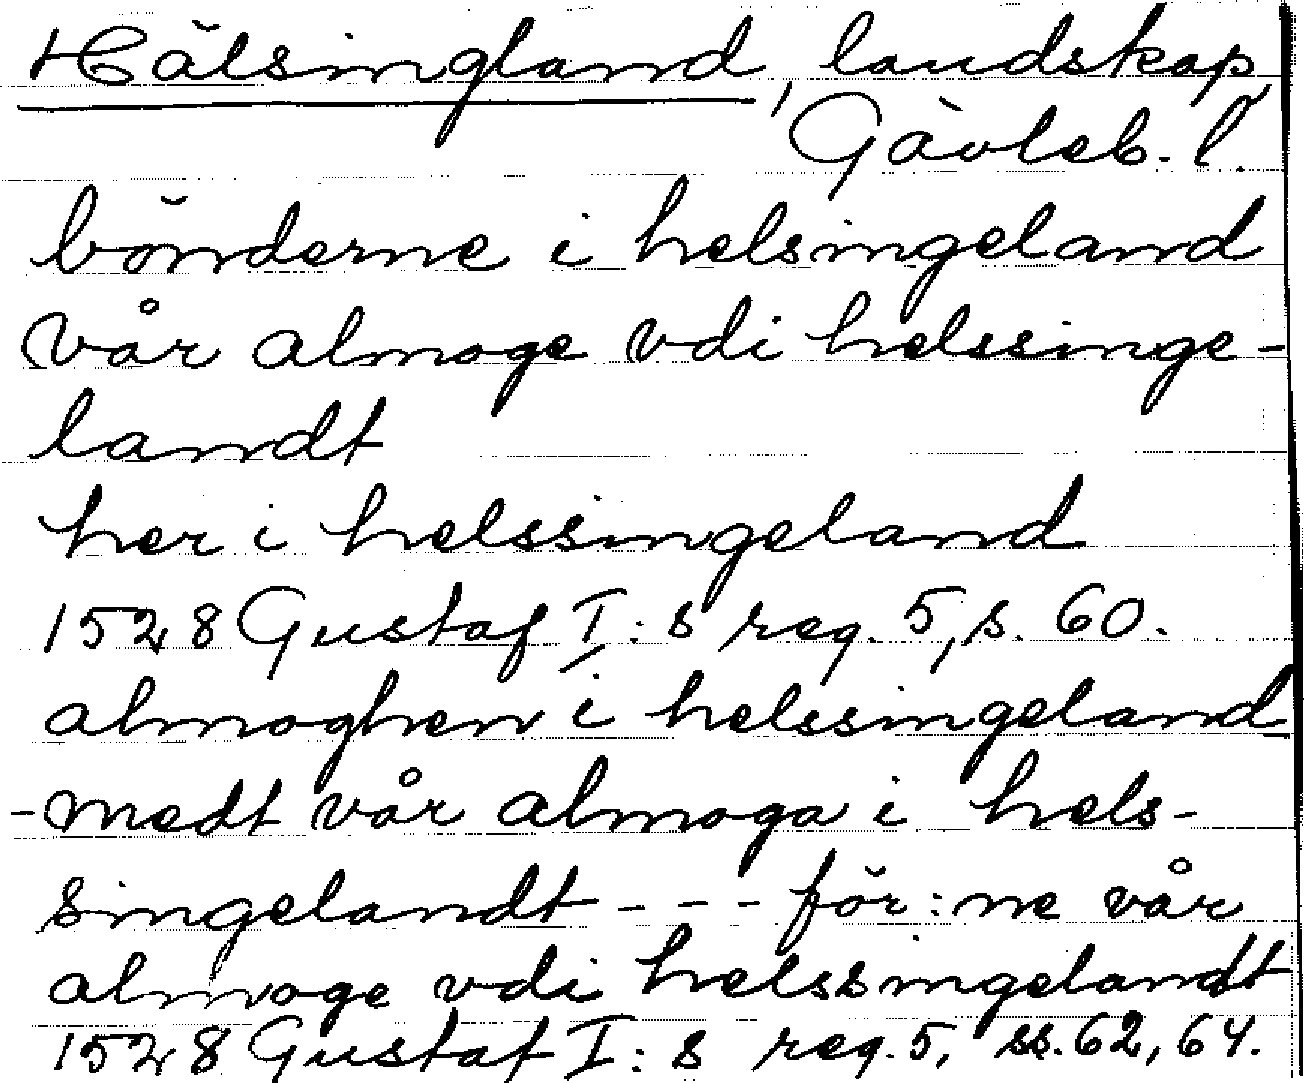 Hälsingland, landskap,
Gävleb. l.
bönderne i helsingeland
Vår almoge vdi helssinge-
landt
her i helssingeland
1528 Gustaf I:s reg. 5, s. 60.
almoghen i helssingeland
-medt vår almoga i hels-
singelandt - - - för:ne vår
almoge vdi helssingelandt
1528 Gustaf I:s reg. 5, ss. 62, 64.